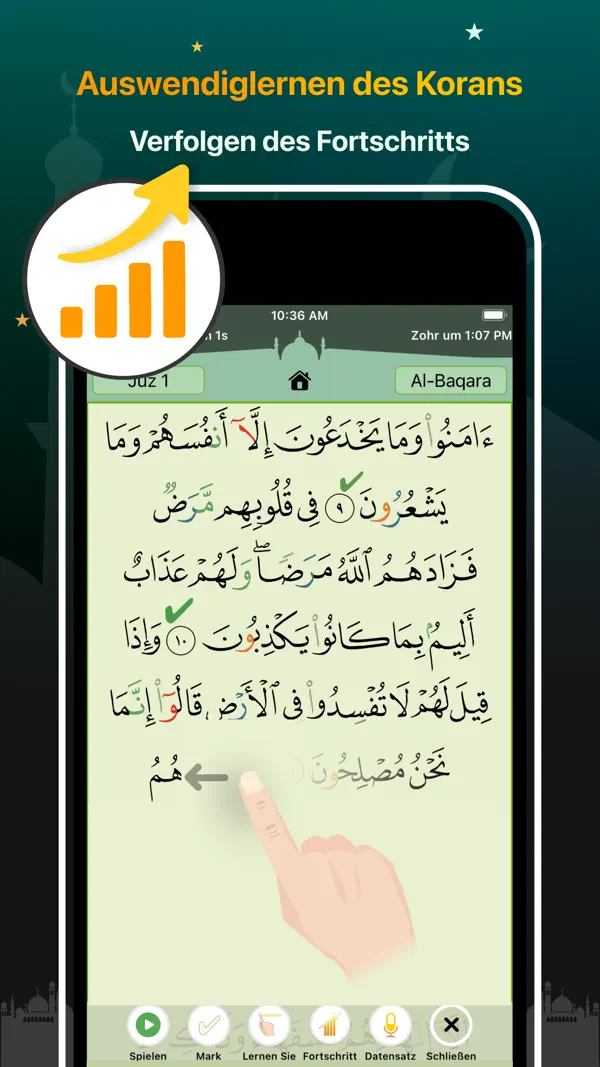 Auswendiglernen des Korans
Verfolgen des Fortschritts
10:36 AM
1s
Zohr um 1:07 PM
Juz 1
Al-Baqara
ءَامَنُوا۟ وَمَا يَخْدَعُونَ إِلَّآ أَنفُسَهُمْ وَمَا
يَشْعُرُونَ ٩ فِى قُلُوبِهِم مَّرَضٌ
فَزَادَهُمُ ٱللَّهُ مَرَضًا ۖ وَلَهُمْ عَذَابٌ
أَلِيمٌۢ بِمَا كَانُوا۟ يَكْذِبُونَ ١٠ وَإِذَا
قِيلَ لَهُمْ لَا تُفْسِدُوا۟ فِى ٱلْأَرْضِ قَالُوٓا۟ إِنَّمَا
نَحْنُ مُصْلِحُونَ هُمُ
Spielen
Mark
Lernen Sie
Fortschritt
Datensatz
Schließen